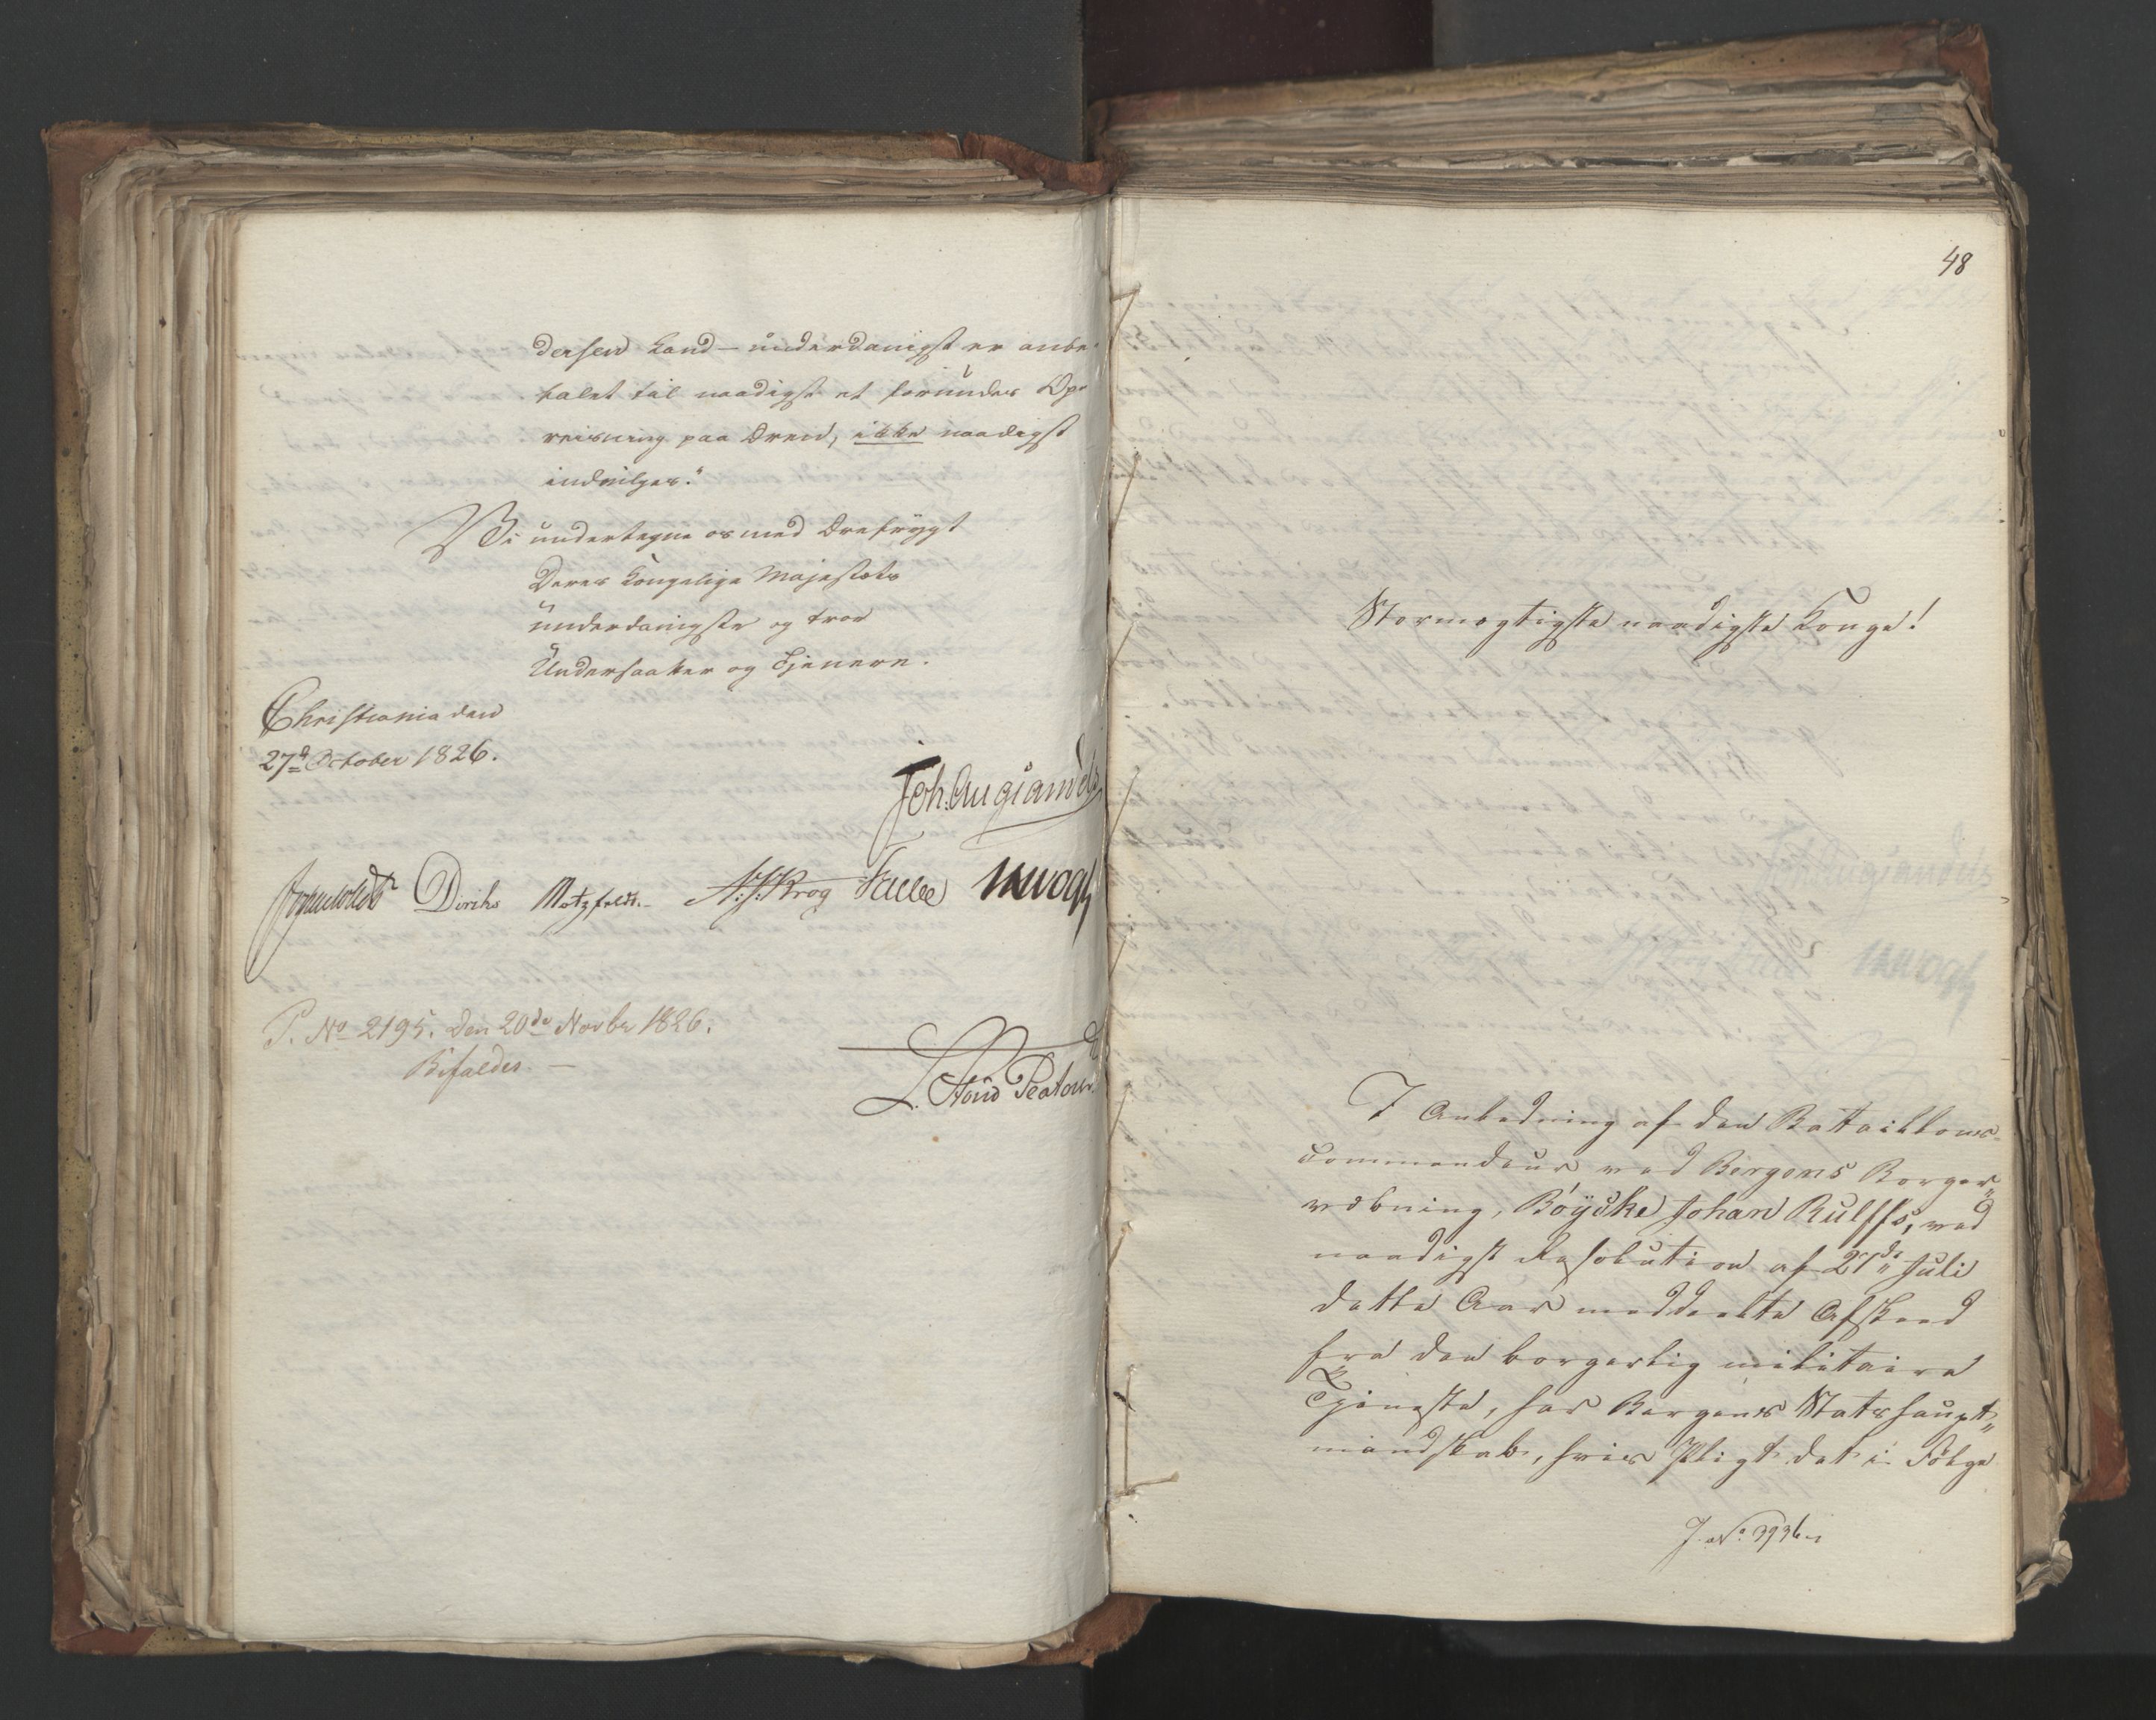 dersen Land – underdanigst er anbe-
falet til naadigst at forundes Op-
reisning paa Æren, ikke naadigst
indvilges."
Vi undertegne os med Ærefrygt
Deres Kongelige Majestæts
underdanigste og troe
Undersaatter og Tjenere.
Christiania den
27d October 1826.
Joh. Aug Sandels
Diriks Motzfeldt. A:S:Krog Falbe
P. No 2195. Den 20de Novbr 1826.
Bifaldes. –
48
Stormægtigste naadigste Konge!
I Anledning af den Battaillons-
commandeur ved Bergens Borger"
væbning, Böyske Johan Rulffs, ved
naadigst Resolution af 27de Juli
dette Aar meddeelte Afskeed
fra den borgerlig militaire
Tjeneste, har Bergens Stats haupt"
mandskab, hvis Pligt det i Fölge
J. No. 3936